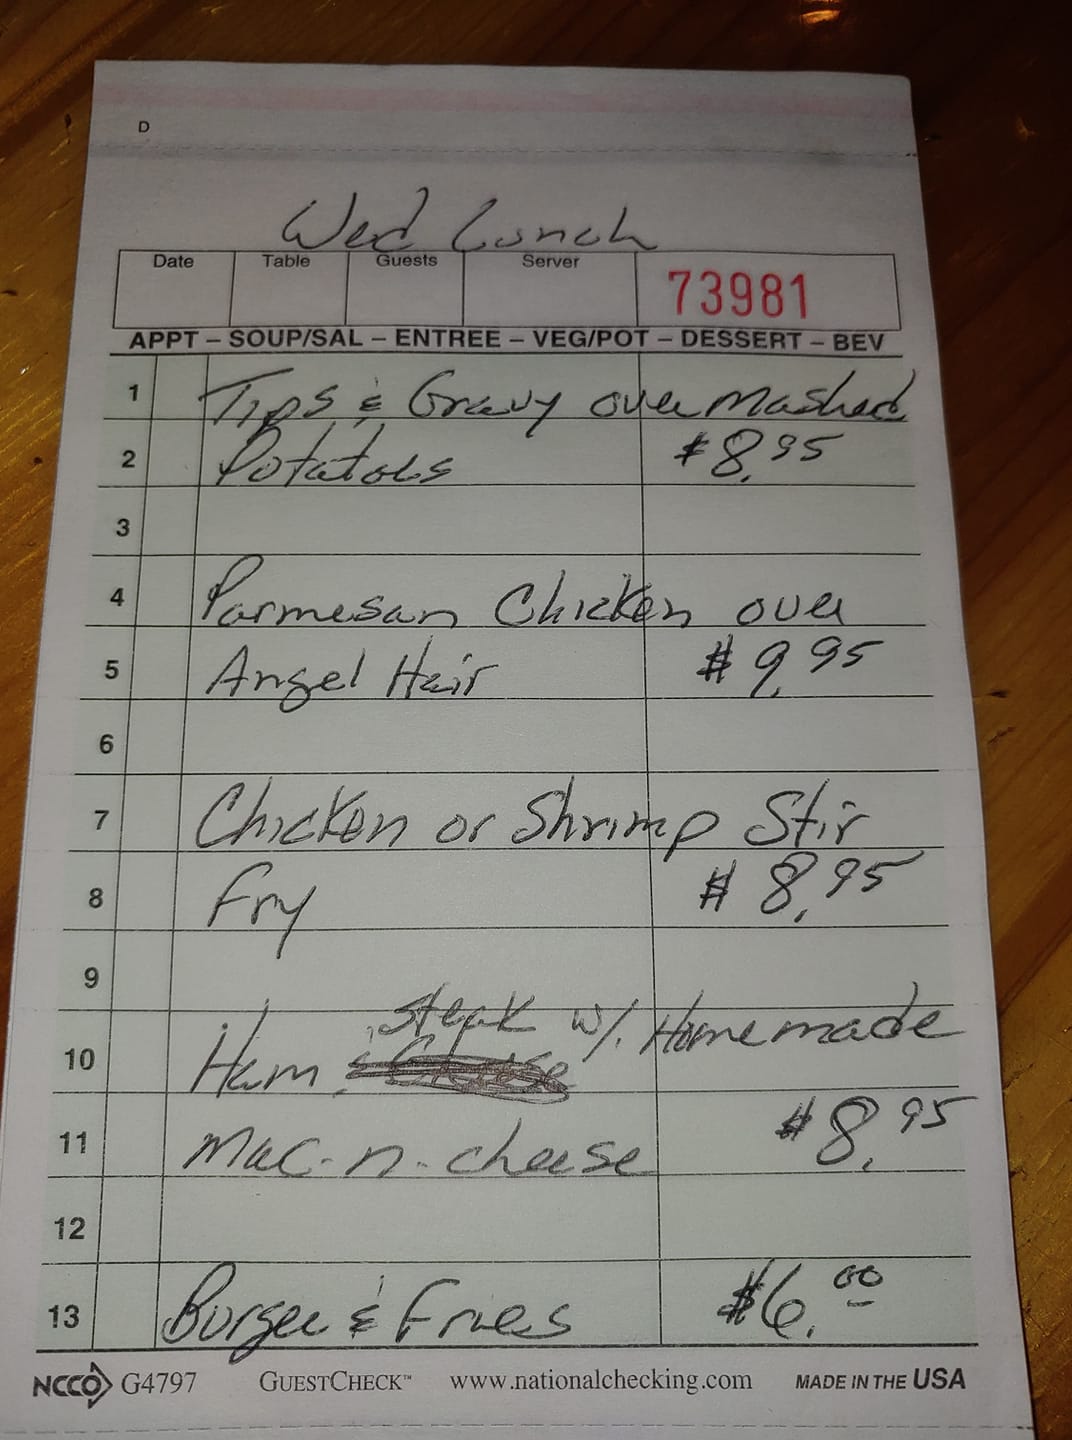 D
Wed Lunch
Date Table Guests Server 73981
APPT – SOUP/SAL – ENTREE – VEG/POT – DESSERT – BEV
1 Tips & Gravy over Mashed
2 Potatoes $8.95
3
4 Parmesan Chicken over
5 Angel Hair $9.95
6
7 Chicken or Shrimp Stir
8 Fry $8.95
9
steak w/. Homemade
10 Ham & Cheese
11 Mac-n-cheese $8.95
12
13 Burger & Fries $6.00
NCCO G4797 GUESTCHECK™ www.nationalchecking.com MADE IN THE USA